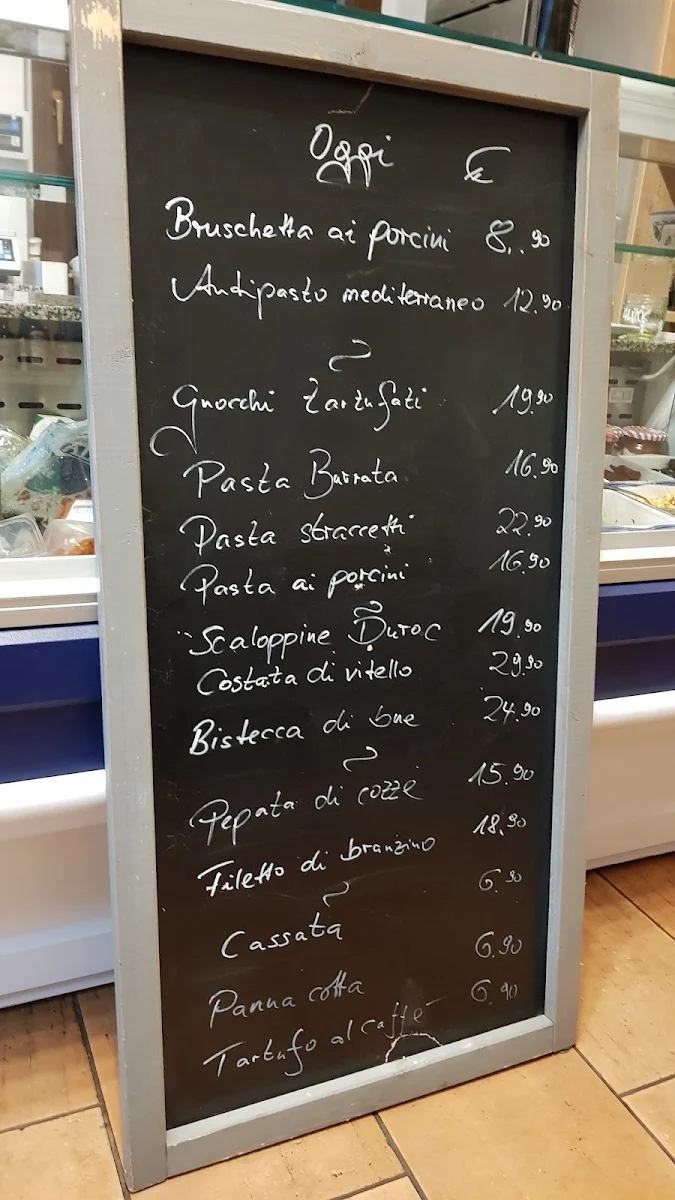 Oggi €
Bruschetta ai porcini 8..90
Antipasto mediterraneo 12.90
Gnocchi tartufati 19.90
Pasta Burrata 16.90
Pasta straccetti 22.90
Pasta ai porcini 16.90
Scaloppine Duroc 19.90
Costata di vitello 29.90
Bistecca di bue 24.90
Pepata di cozze 15.90
Filetto di branzino 18.90
Cassata 6.90
Panna cotta 6.90
Tartufo al caffè 6.90